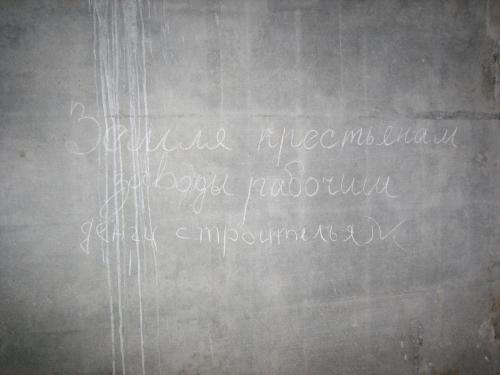 Земля крестьянам
заводы рабочим
денги строительям